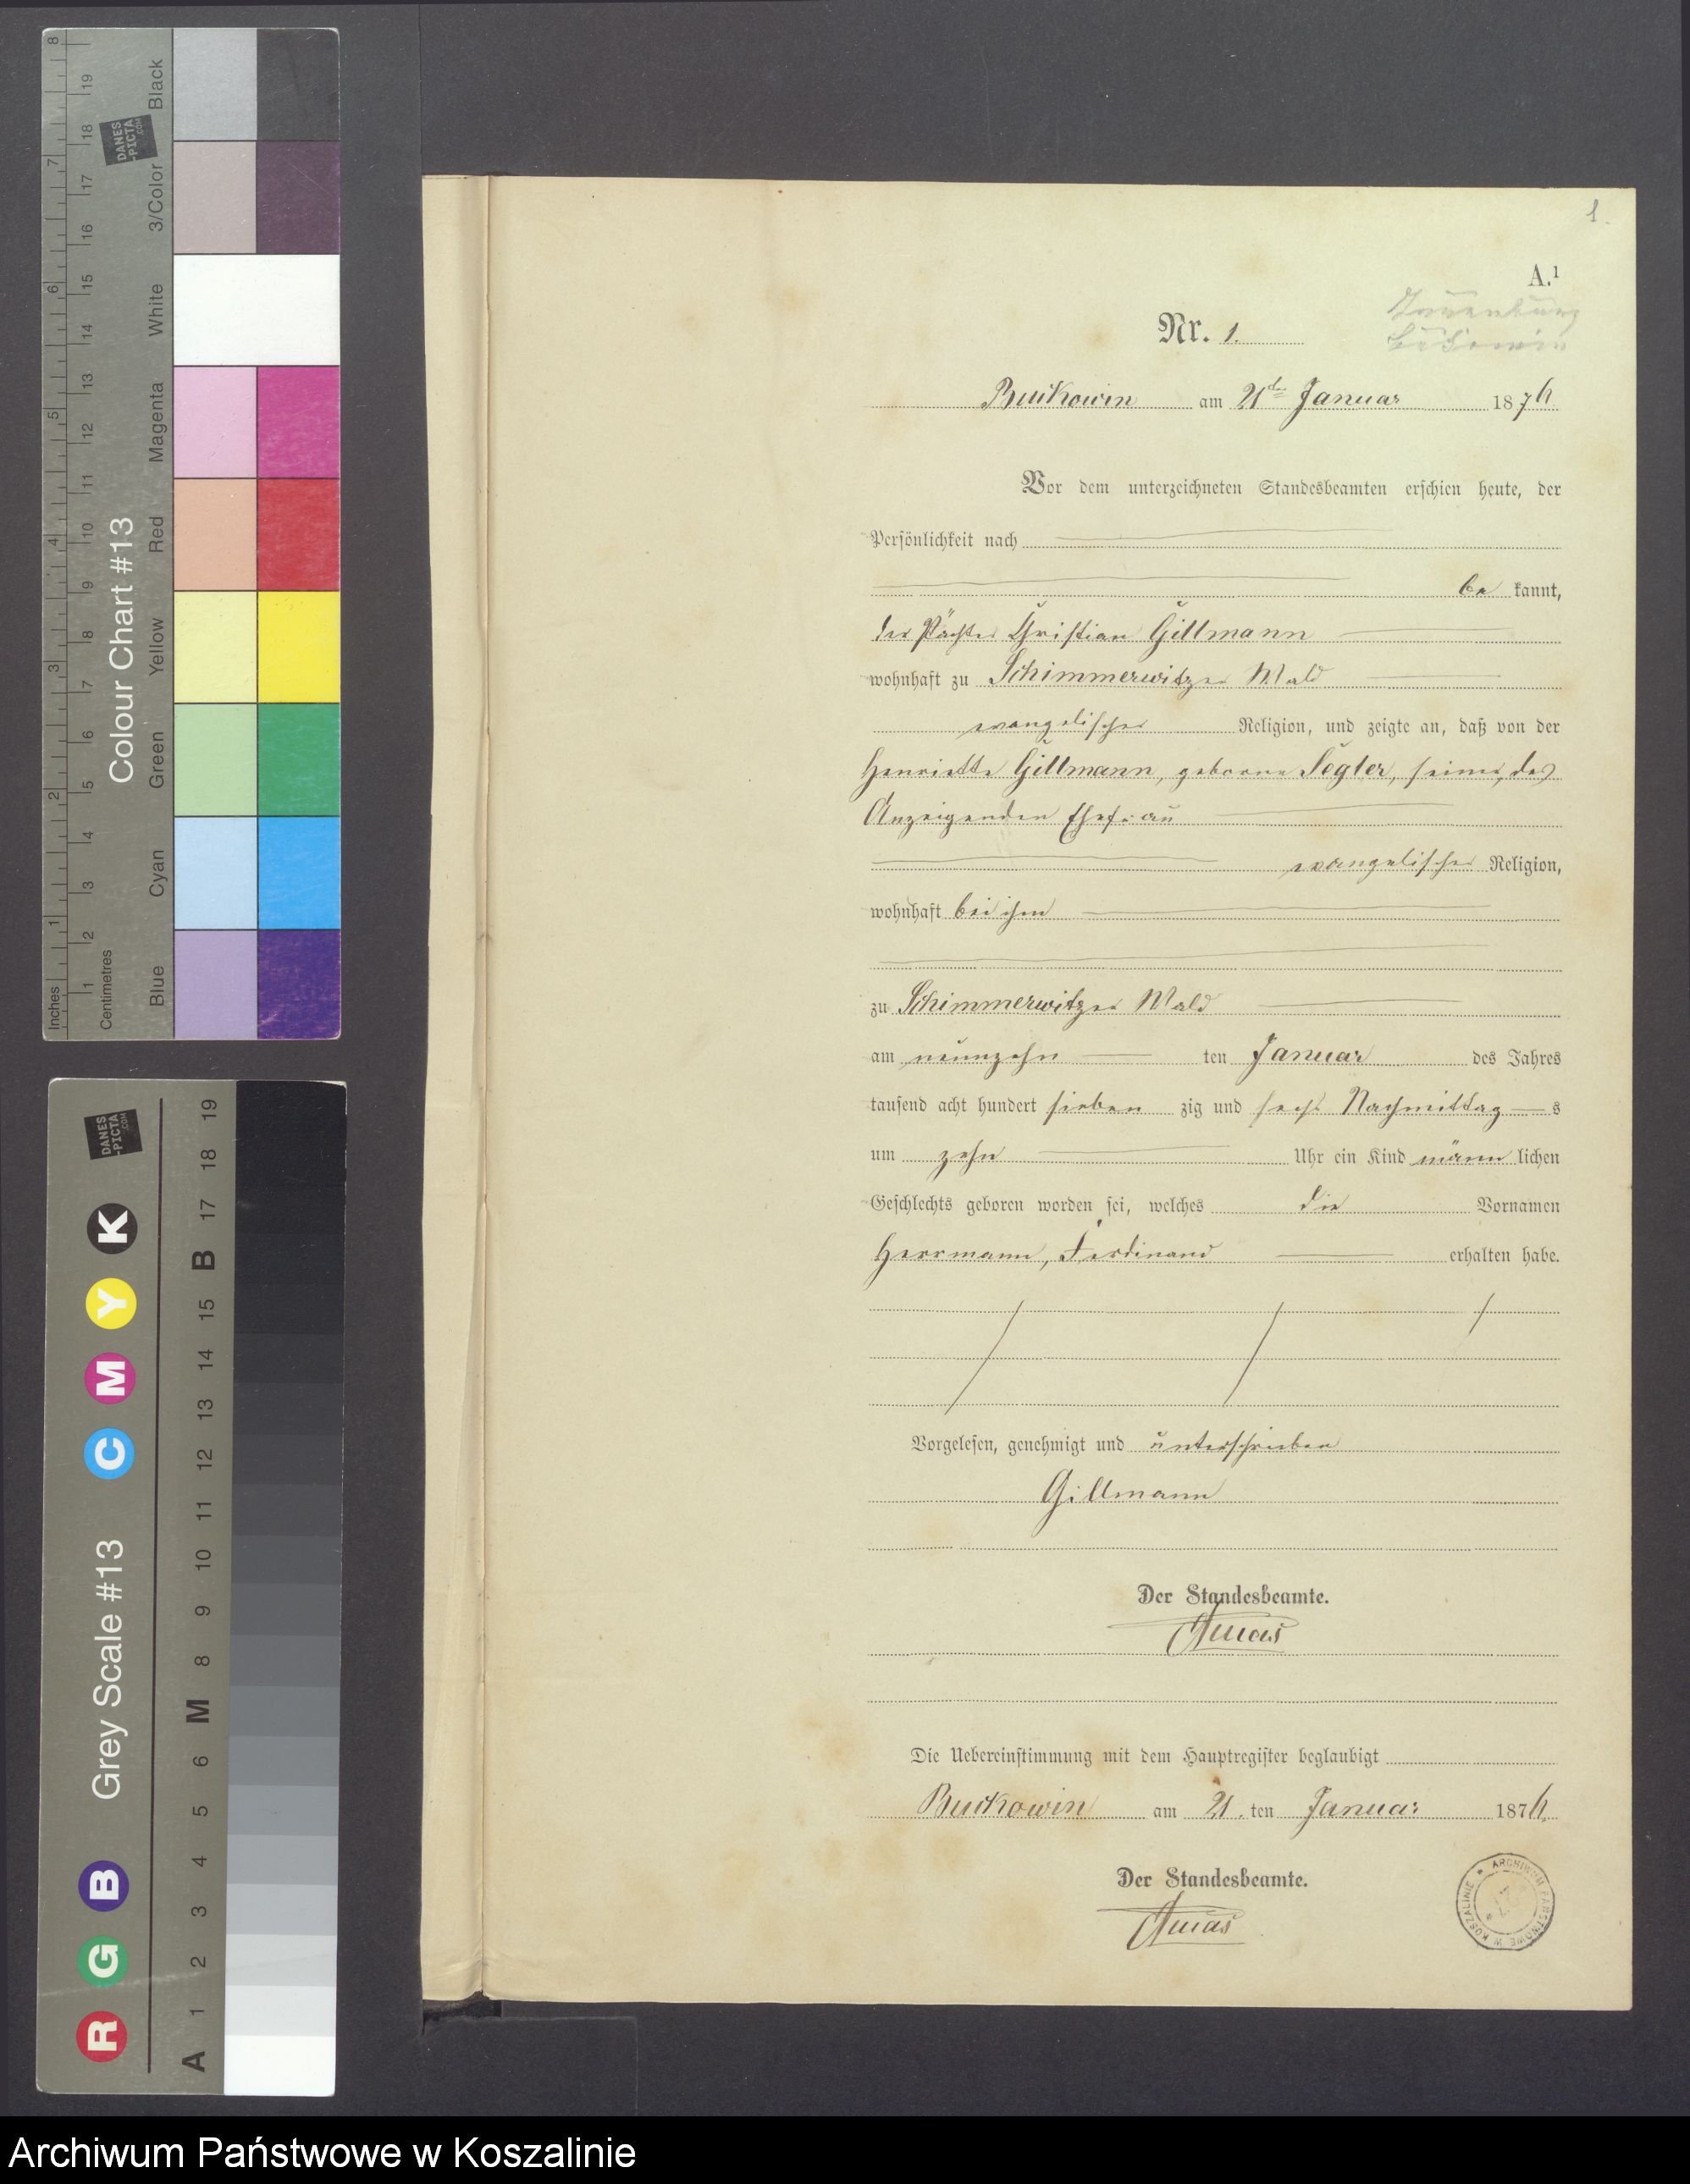 1.
A.¹
Nr. 1.
Lauenburg
Buckowin am 21ten Januar 1876
Vor dem unterzeichneten Standesbeamten erschien heute, der
Persönlichkeit nach
be kannt,
der Pächter Christian Gillmann
wohnhaft zu Schimmerwitzer Wald
evangelischer Religion, und zeigte an, daß von der
Henriette Gillmann, geborne Tegler, seiner, des
Anzeigenden Ehefrau
evangelischer Religion,
wohnhaft bei ihm
zu Schimmerwitzer Wald
am neunzehn ten Januar des Jahres
tausend acht hundert sieben zig und sechs Nachmittag s
um zehn Uhr ein Kind männ lichen
Geschlechts geboren worden sei, welches die Vornamen
Herrmann, Ferdinand erhalten habe.
Vorgelesen, genehmigt und unterschrieben
Gillmann
Der Standesbeamte.
Die Uebereinstimmung mit dem Hauptregister beglaubigt
Buckowin am 21. ten Januar 1876
Der Standesbeamte.
ARCHIWUM PAŃSTWOWE W KOSZALINIE
Colour Chart #13
Black
3/Color
White
Magenta
Red
Yellow
Green
Cyan
Blue
Inches 1 2 3 4 5 6 7 8
Centimetres 1 2 3 4 5 6 7 8 9 10 11 12 13 14 15 16 17 18 19
DANES-PICTA.COM
Grey Scale #13
R G B C M Y K
A 1 2 3 4 5 6 M 8 9 10 11 12 13 14 15 B 17 18 19
DANES-PICTA.COM
Archiwum Państwowe w Koszalinie